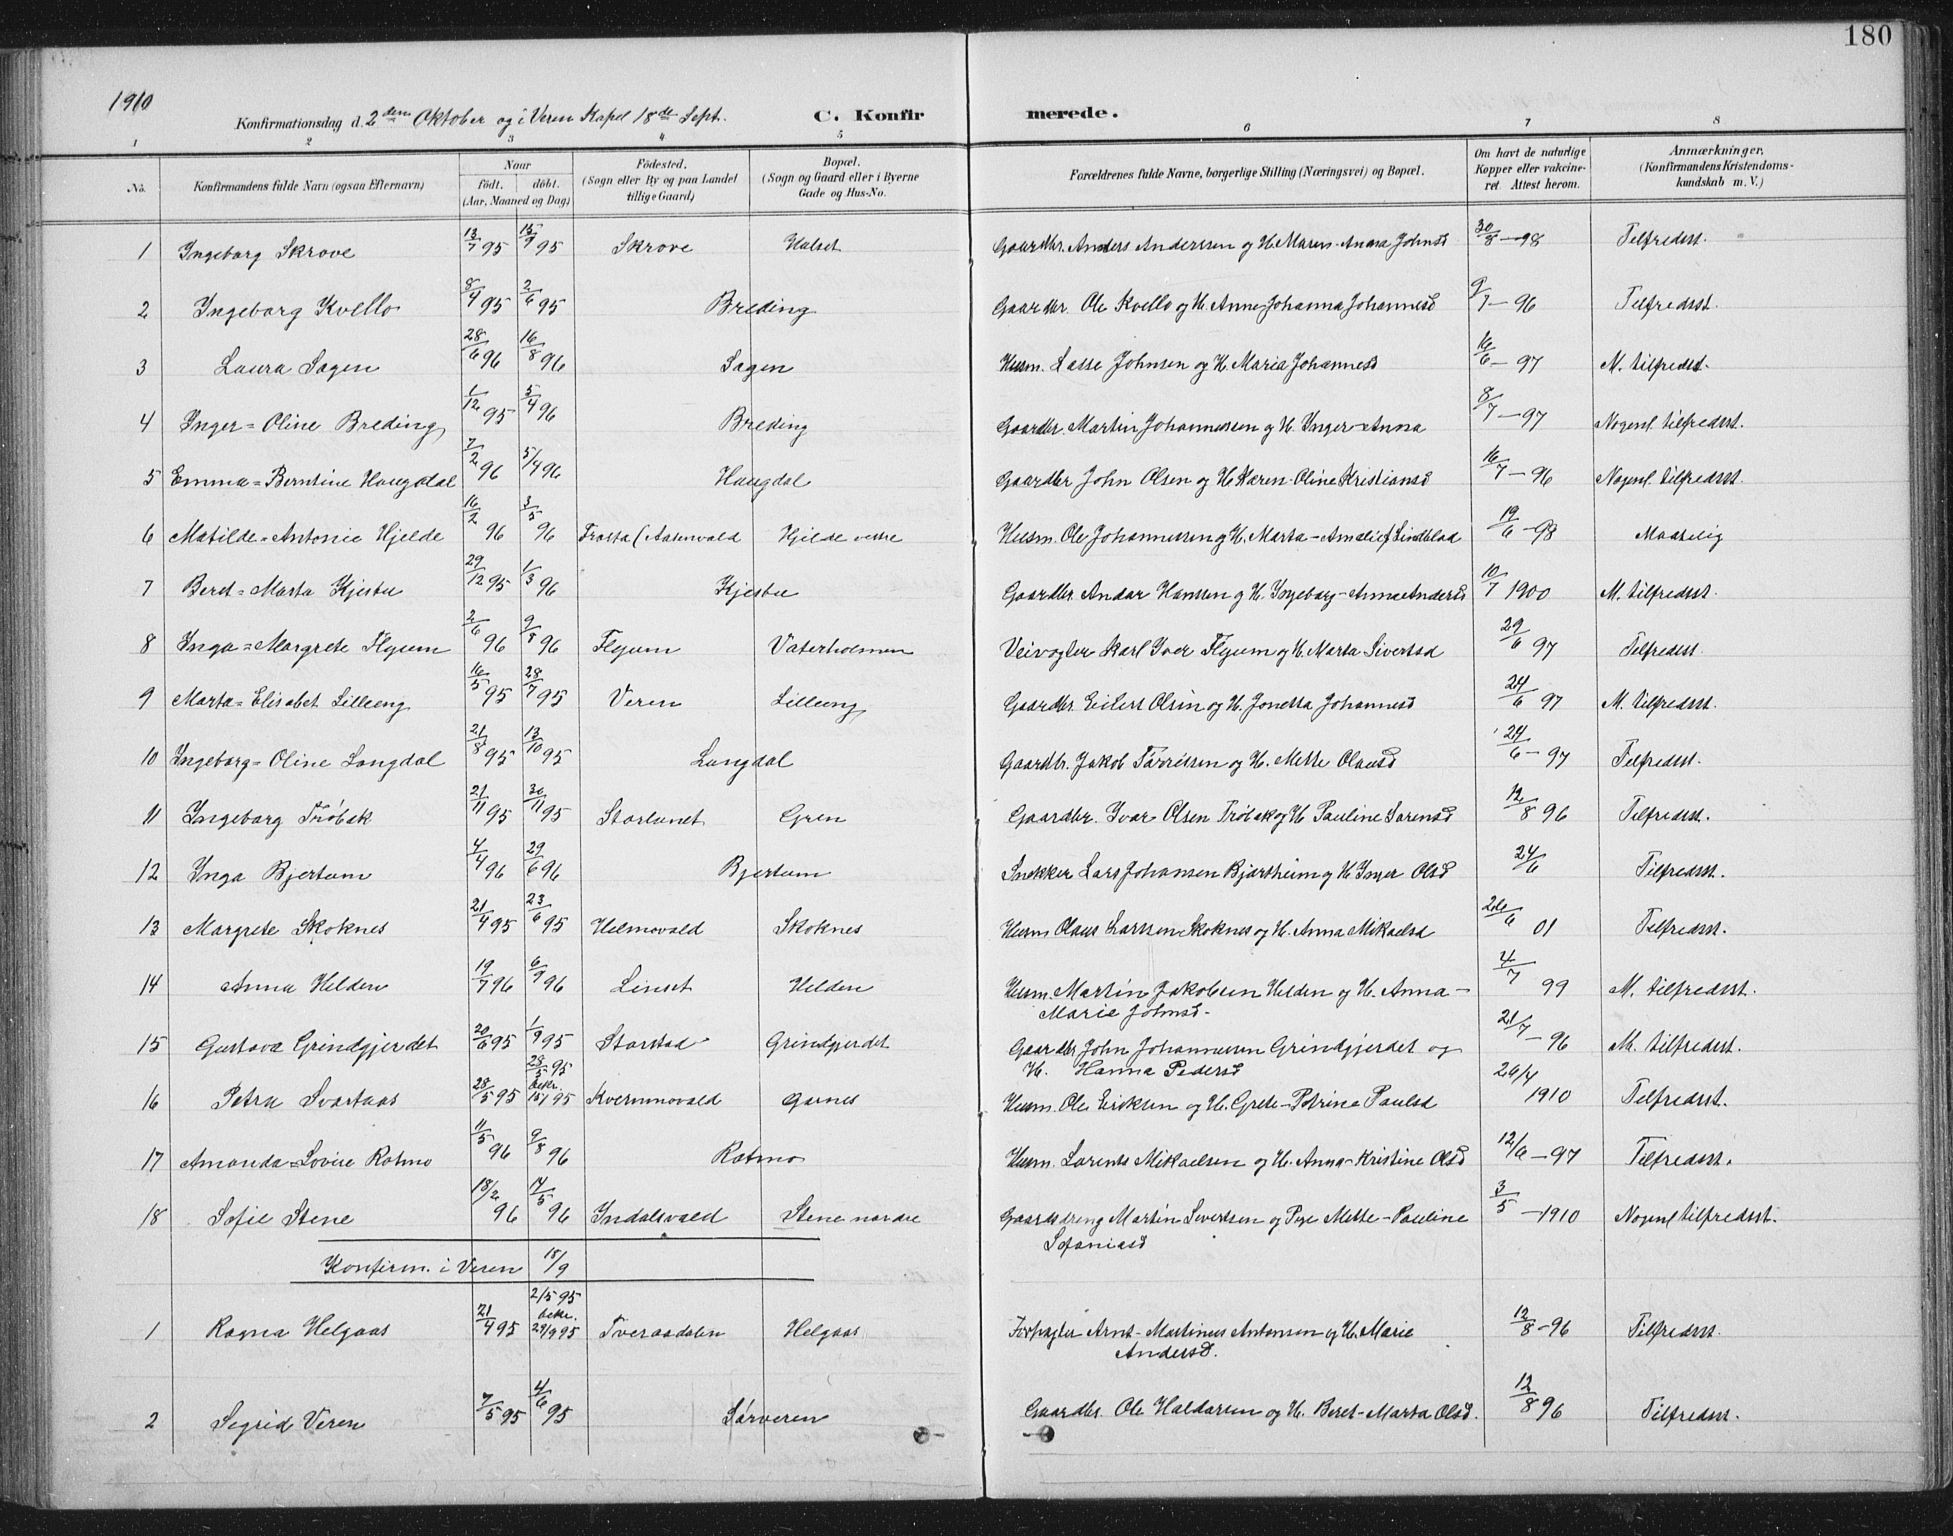 180
1910
Konfirmationsdag d. 2den Oktober og i Veren Kapel 18de Sept. C. Konfirmerede.
1 2 3 4 5 6 7 8
No. Konfirmandens fulde Navn (ogsaa Efternavn) Naar født. døbt. (Aar, Maaned og Dag) Fødested. (Sogn eller By og paa Landet tillige Gaard) Bopæl. (Sogn og Gaard eller i Byerne Gade og Hus-No. Forældrenes fulde Navne, borgerlige Stilling (Næringsvei) og Bopæl. Om havt de naturlige Kopper eller vakcineret Attest herom. Anmærkninger. (Konfirmandens Kristendomskundskab m. V.)
1 Ingeborg Skrove 13/7 95 15/9 95 Skrove Halset Gaardbr. Anders Anderssen og H. Maren-Anna Johnsd 30/8 - 98 Tilfredsst.
2 Ingeborg Kvello 8/4 95 2/6 95 Breding Gaardbr. Ole Kvello og H. Anne-Johanna Johannesd 9/7 - 96 Tilfredsst.
3 Laura Sagen 28/6 96 16/8 96 Sagen Husm. Lasse Johnsen og H. Maria Johannesd 16/6 - 97 M. tilfredsst.
4 Inger=Oline Breding 1/12 95 5/4 96 Breding Gaardbr. Martin Johannessen og H. Inger-Anna 8/7 - 97 Nogenl. tilfredsst.
5 Emma=Berntine Haugdal 7/2 96 5/4 96 Haugdal Gaardbr John Olsen og H. Karen-Oline Kristiansd 16/7 - 96 Nogenl. tilfredsst.
6 Matilde=Antonie Hjelde 16/2 96 3/5 96 Frosta Hjelde vestre Husm. Ole Johannessen og H. Marta-Amalie Lindblad 19/6 - 98 Maadelig
7 Beret=Marta Kjesbu 29/12 95 1/3 96 Kjesbu Gaardbr. Andor Hansen og H. Ingeborg-Anna Andersd 10/7 1900 M. tilfredsst.
8 Inga=Margrete Flyum 2/6 96 9/8 96 Flyum Vaterholmen Veivogter Karl Iver Flyum og H. Marta Sivertsd 29/6 97 Tilfredsst.
9 Marta=Elisabet Lilleeng 16/5 95 28/7 95 Veren Lilleeng Gaardbr. Eilert Olsen og H. Jonetta Johannesd 24/6 97 M. tilfredsst.
10 Ingeborg=Oline Langdal 21/8 95 13/10 95 Langdal Gaardbr. Jakob Tørrissen og H. Mette Olausd 24/6 - 97 Tilfredsst.
11 Ingeborg Trøbak 21/11 95 30/11 95 Storlunet Gren Gaardbr. Ivar Olsen Trøbak og H Pauline Sørensd 12/8 96 Tilfredsst.
12 Inga Bjertum 4/4 96 29/6 96 Bjertum Snekker Lars Johansen Bjartheim og H Inger Olsd 24/6 Tilfredsst.
13 Margrete Skoknes 21/4 95 23/6 95 Helmovald Skoknes Husm Olaus Larssen Skoknes og H. Anna Mikaelsd 26/6 01 Tilfredsst.
14 Anna Helden 19/7 96 6/9 96 Linset Helden Husm. Martin Jakobsen Helden og H. Anna-
Marie Johnsd- 4/7 99 M. tilfredsst.
15 Gustava Grindgjerdet 20/6 95 1/9 95 Storstad Grindgjerdet Gaardbr John Johannessen Grindgjerdet og
H. Hanna Pedersd 21/7 - 96 M. tilfredsst.
28/5 95
16 Petra Svartaas 28/5 95 bekr. Kvernmovald Garnes Husm. Ole Eriksen og H. Grete-Petrine Paulsd 26/4 1910 Tilfredsst.
17 Amanda=Lovise Ratmo 11/5 96 9/8 96 Ratmo Husm. Lorents Mikaelsen og H. Anna-Kristine Olsd 12/6 - 97 Tilfredsst.
18 Sofie Stene 18/2 96 14/5 96 Indalsvald Stene nordre Gaardsdreng Martin Sivertsen og Pige Mette-Pauline
Sofaniasd 3/5 - 1910 Nogenl tilfredsst.
Konfirm. i Veren 18/9
21/5 95
1 Ragna Helgaas 21/4 95 bekr. 29/9 95 Tveraadalen Helgaas Forpagter Arnt-Martinus Antonsen og H. Marie
Andersd. 12/8 - 96 Tilfredsst.
2 Sigrid Veren 7/5 95 4/6 95 Sørveren Gaardbr. Ole Haldorsen og H. Beret-Marta Olsd. 12/8 96 Tilfredsst.